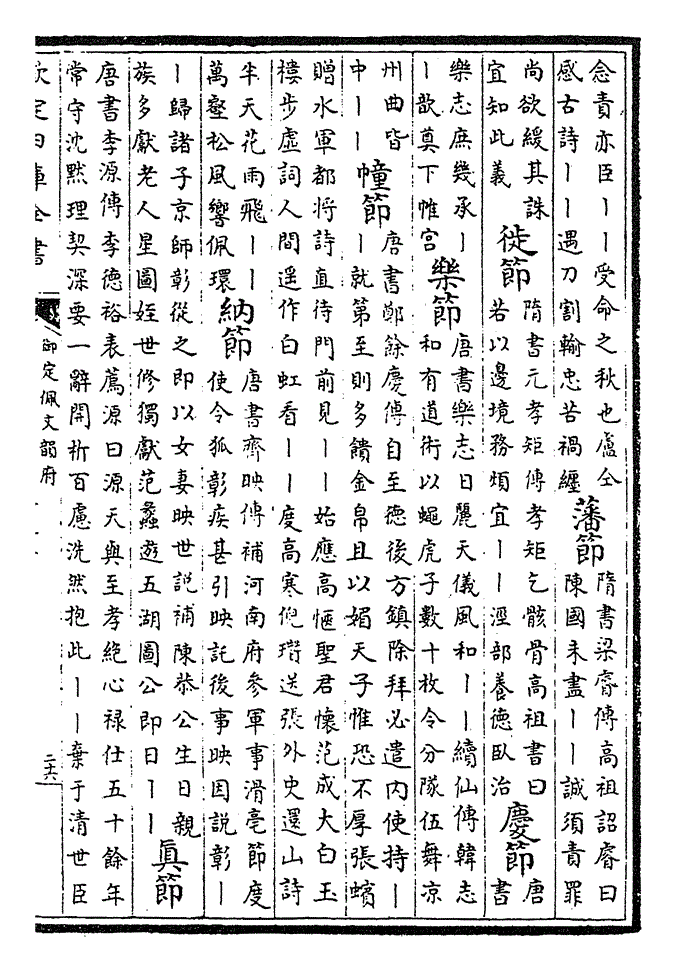 念責亦臣丨丨受命之秋也盧仝
感古詩丨丨遇刀割輸忠苦禍纏
藩節
隋書梁睿傳高祖詔睿曰
陳國未盡丨丨誠須責罪
尚欲緩其誅
宜知此義
徙節
隋書元孝矩傳孝矩乞骸骨高祖書曰
若以邊境務煩宜丨丨涇部養德臥治
慶節
唐
書
樂志庶幾承丨
丨歆奠下帷宮
樂節
唐書樂志曰麗天儀風和丨丨續仙傳韓志
和有道術以蠅虎子數十枚令分隊伍舞凉
州曲皆
中丨丨
幢節
唐書鄭餘慶傳自至德後方鎮除拜必遣内使持丨
丨就第至則多饋金帛且以媚天子惟恐不厚張蠙
贈水軍都將詩直待門前見丨丨始應高愜聖君懷范成大白玉
樓步虚詞人間遥作白虹看丨丨度高寒倪瓚送張外史還山詩
半天花雨飛丨丨
萬壑松風響佩環
納節
唐書齊映傳補河南府參軍事滑亳節度
使令狐彰疾甚引映託後事映因説彰丨
丨歸諸子京師彰從之即以女妻映世説補陳恭公生日親
族多獻老人星圖姪世修獨獻范蠡遊五湖圖公即日丨丨
眞節
唐書李源傳李德裕表薦源曰源天與至孝絶心禄仕五十餘年
常守沈默理契深要一辭開析百慮洗然抱此丨丨棄于清世臣
欽定四庫全書
御定佩文韻府
二十六